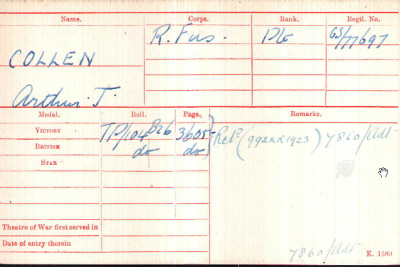 Name. Corps. Rank. Regtl. No.
COLLEN R. Fus. Pte GS/77697
Arthur. T.
Medal. Roll. Page. Remarks.
VICTORY TP/104B26 3605
BRITISH do do Retd (992KR1923) 7860/Adt.
STAR
Theatre of War first served in
Date of entry therein
7860/Adt. K. 1380